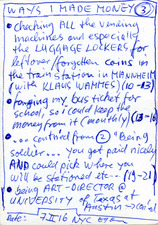 WAYS I MADE MONEY ③
• CHECKING ALL the vending
machines and especially
the LUGGAGE LOCKERS for
leftover/forgotten coins in
the train station in MANNHEIM
(with KLAUS WAMMES) (10-13)
• forging my bus ticket for
school, so i could keep the
money from it (monthly) (13-16)
• ...contind from ② Being
soldier... you got paid nicely
AND could pick where you
will be stationed etc... (19-21)
• being ART-DIRECTOR @
UNIVERSITY of TEXAS at
AUSTIN
Date: 7.II.16 NYC